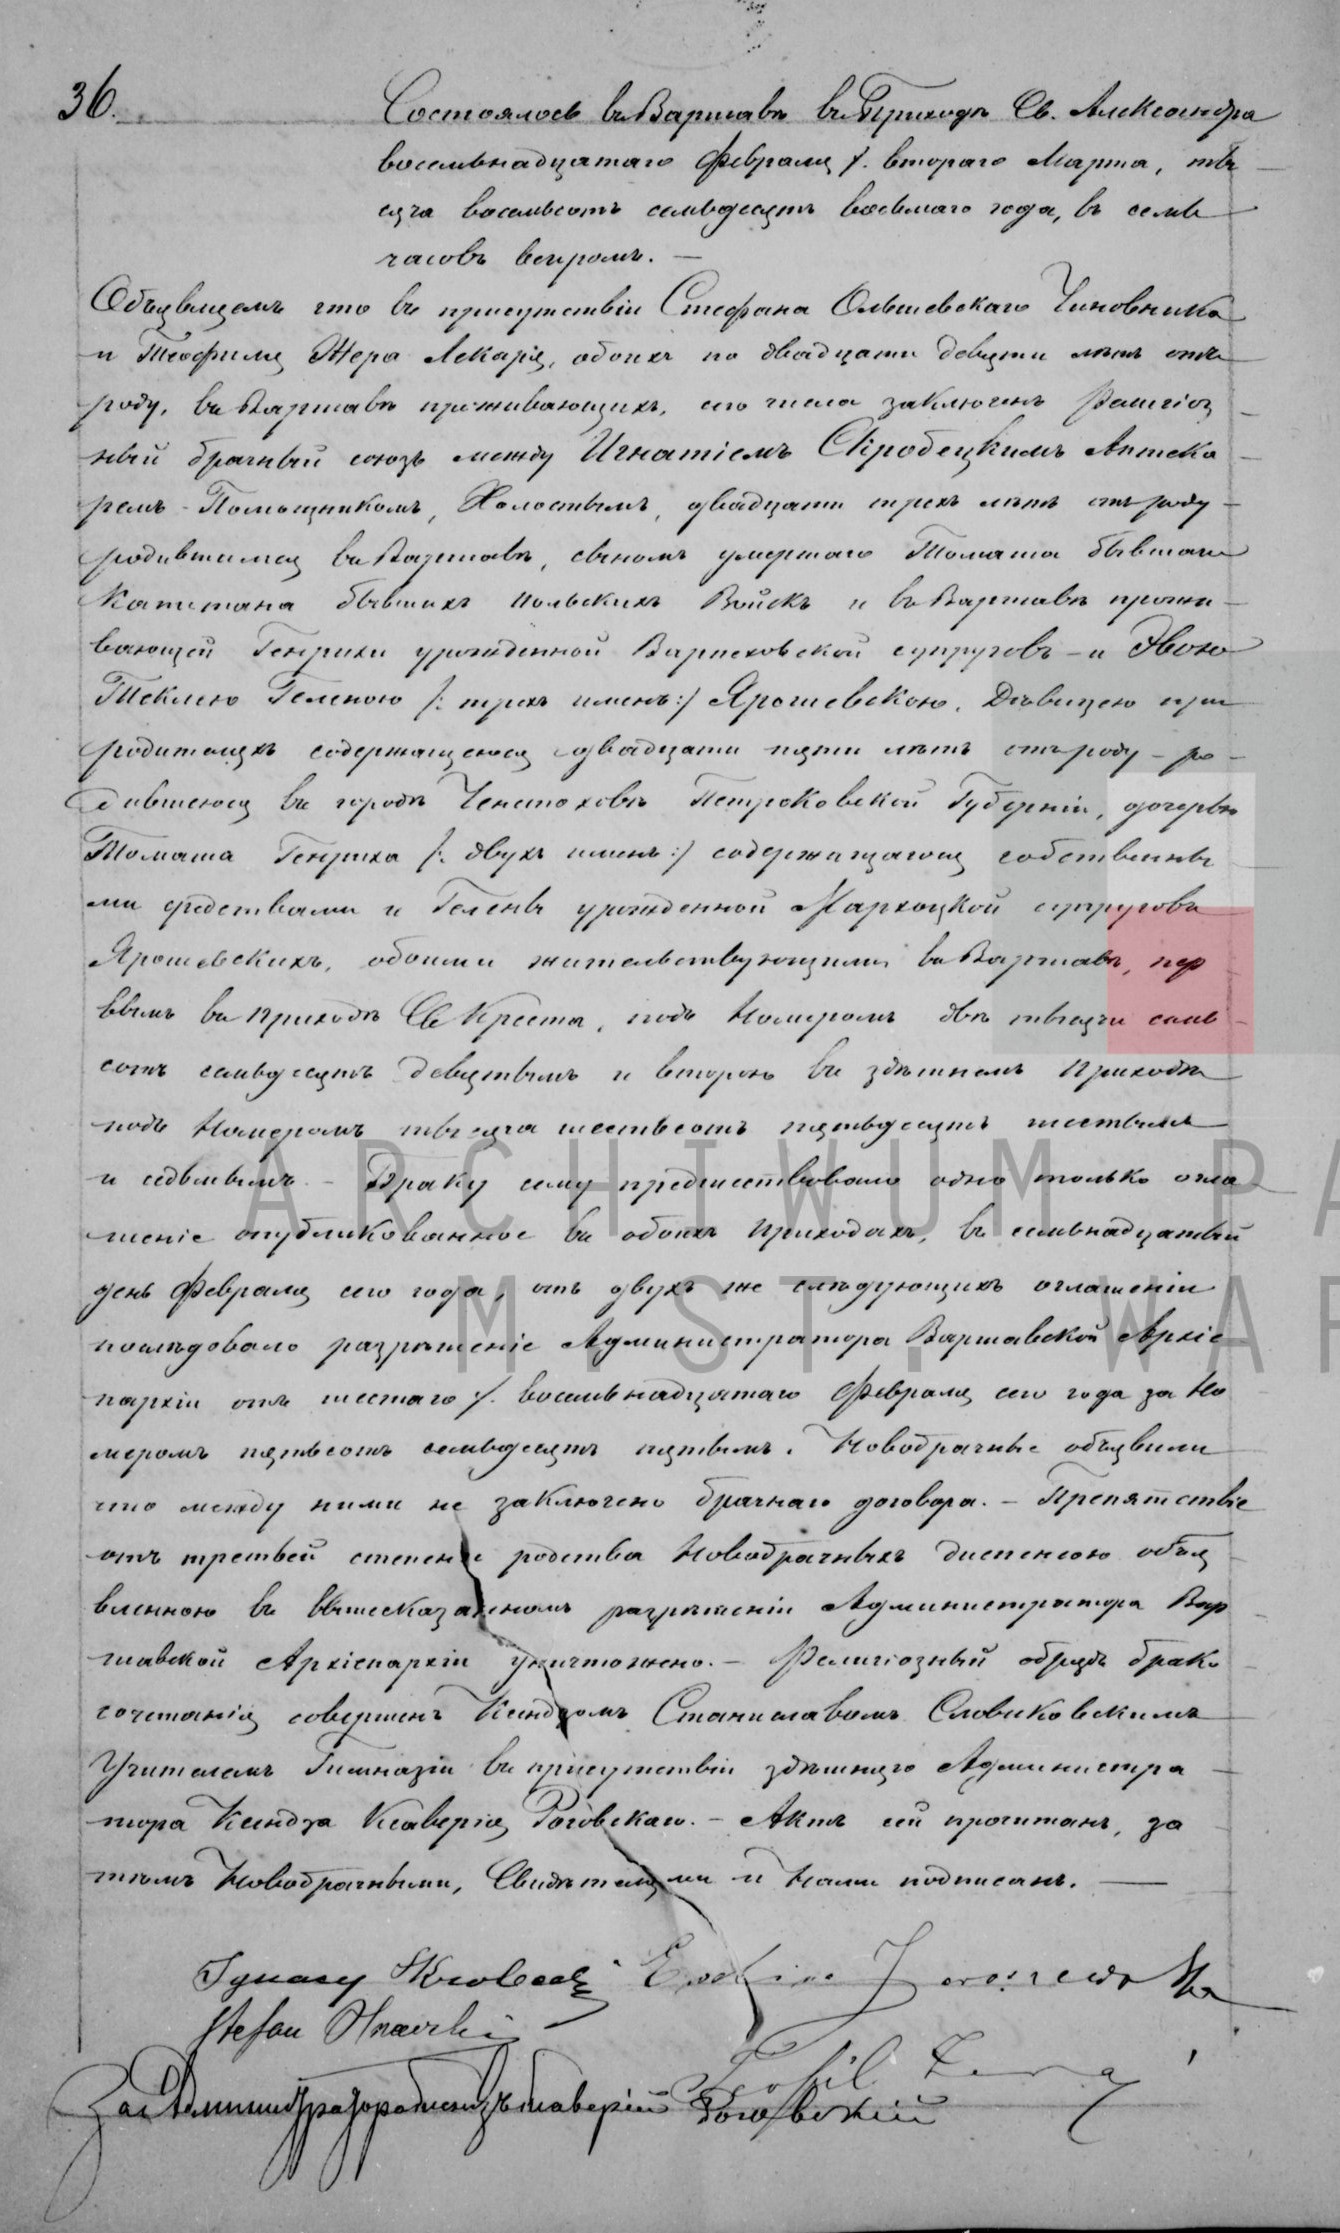 36.
Состоялось въ Варшавѣ въ Приходѣ Св. Александра
восемьнадцатаго Февраля /. втораго Марта, ты
сяча восемьсотъ семьдесятъ восьмаго года, въ семь
часовъ вечеромъ. —
Объявляемъ что въ присутствіи Стефана Чиновника
и Теофиля Лекаря, обоихъ по двадцати девяти лѣтъ отъ
роду, въ Варшавѣ проживающихъ, сего числа заключенъ Религіоз
ный брачный союзъ между Игнатіемъ Скробецкимъ Аптека
ремъ - Помощникомъ, Холостымъ, двадцати трехъ лѣтъ отъ роду -
родившимся въ Варшавѣ, сыномъ умершаго Томаша бывшаго
Капитана бывшихъ Польскихъ Войскъ и въ Варшавѣ прожи
вающей Генрихи урожденной супруговъ - и Эвою
Теклею Геленою /: трехъ именъ :/ Ярошевскою, Дѣвицею при
родителяхъ содержащеюся двадцати пяти лѣтъ отъ роду - ро -
дившеюся въ городѣ Ченстоховѣ Петроковской Губерніи, дочерью
Томаша Генриха /: двухъ именъ :/ содержащагося собственны
ми средствами и Гелены урожденной Мархоцкой супруговъ
Ярошевскихъ, обоими жительствующими въ Варшавѣ, пер
вымъ въ приходѣ Св Креста, подъ Номеромъ двѣ тысячи семь
сотъ семьдесятъ девятымъ и второю въ здѣшнемъ приходѣ
подъ Номеромъ тысяча шестьсотъ пятьдесятъ шестымъ
и седьмымъ. - Браку сему предшествовало одно только огла
шеніе опубликованное въ обоихъ приходахъ, въ семьнадцатый
день Февраля сего года, отъ двухъ же слѣдующихъ оглашеній
послѣдовало разрѣшеніе Администратора Варшавской Архіе
пархіи отъ шестаго /. восемьнадцатаго Февраля сего года за Но
меромъ пятьсотъ семьдесятъ пятымъ. Новобрачные объявили
что между ними не заключено брачнаго договора. - Препятствіе
отъ третьей степени родства Новобрачныхъ диспенсою объя
вленною въ вышесказанномъ разрѣшеніи Администратора Вар
шавской Архіепархіи уничтожено. - Религіозный обрядъ брако
сочетанія совершенъ Ксендзомъ Станиславомъ Словиковскимъ
Учителемъ Гимназіи въ присутствіи здѣшняго Администра
тора Ксендза Ксаверія Роговскаго. - Актъ сей прочитанъ, за
тѣмъ Новобрачными, Свидѣтелями и Нами подписанъ. —
Ignacy Skrobecki Jaroszewska
Stefan
Teofil
Ксаверій Роговскій
ARCHIWUM PA
M. ST. WAR